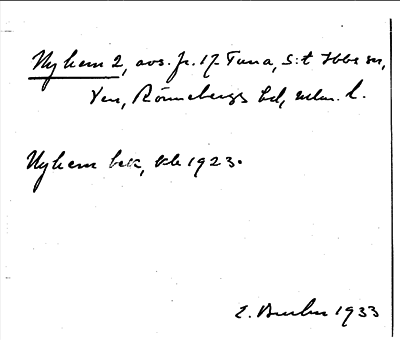 Nyhem 2, avs. fr. 17 Tuna, S:t Ibbs sn,
Ven, Rönnebergs hd, Mlm. l.
Nyhem bek, kb 1923.
1933